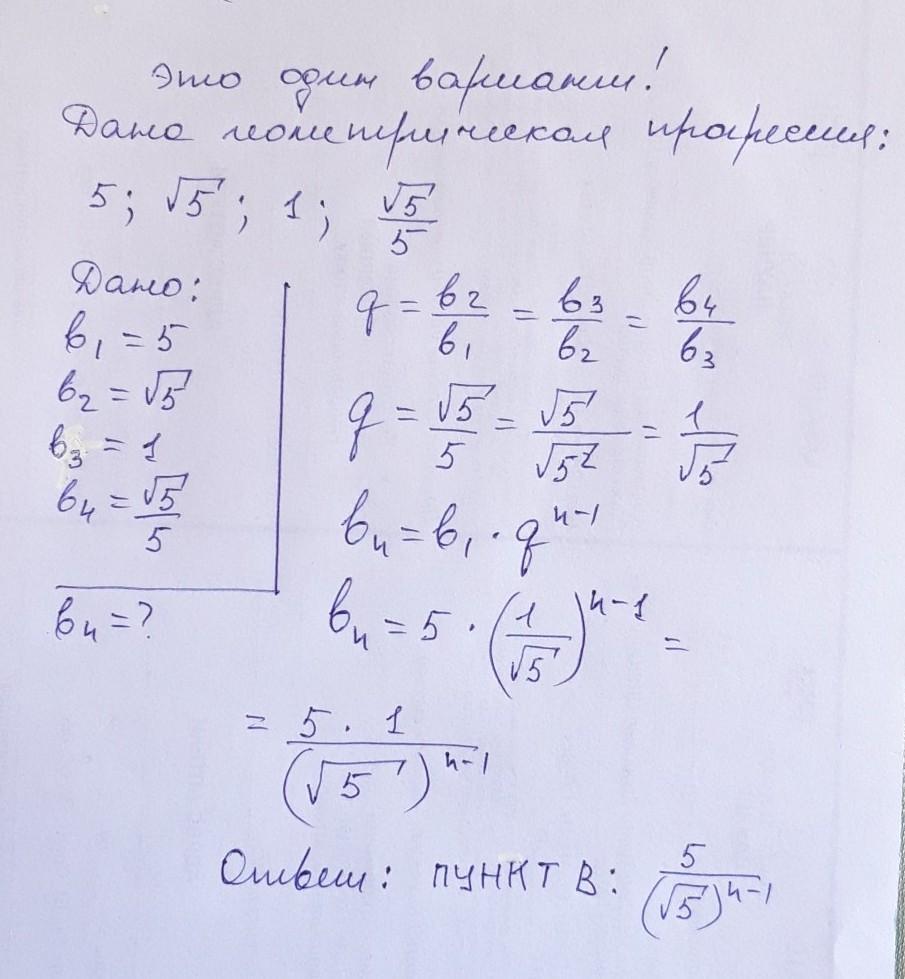 Это один вариант!
Дана геометрическая прогрессия:
5; √5; 1; √5/5
Дано:
b₁ = 5
b₂ = √5
b₃ = 1
b₄ = √5/5
bₙ = ?
q = b₂/b₁ = b₃/b₂ = b₄/b₃
q = √5/5 = √5/√5² = 1/√5
bₙ = b₁ · qⁿ⁻¹
bₙ = 5 · (1/√5)ⁿ⁻¹ =
= 5 · 1/(√5)ⁿ⁻¹
Ответ: ПУНКТ В: 5/(√5)ⁿ⁻¹